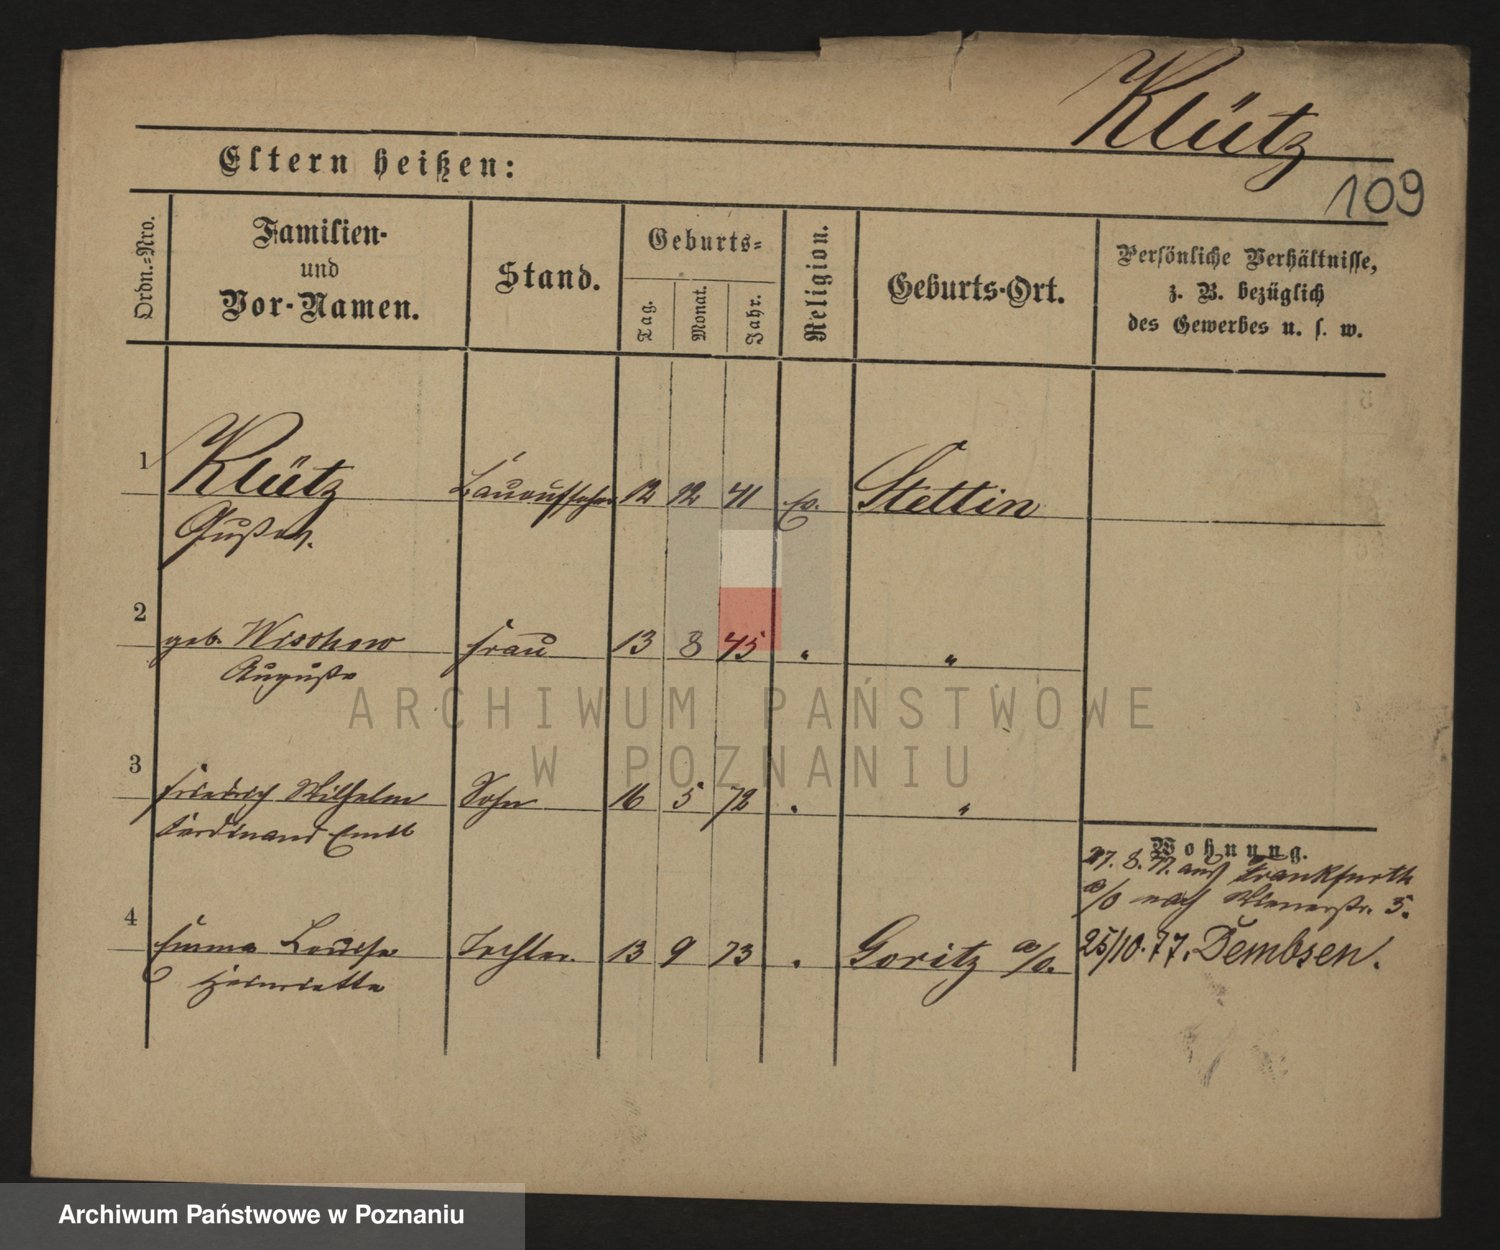 Klütz
109
Eltern heißen:
Ordn.-Nro.
Familien-
und
Vor-Namen.
Stand.
Geburts-
Tag.
Monat.
Jahr.
Religion.
Geburts-Ort.
Persönliche Verhältnisse,
z. B. bezüglich
des Gewerbes u. s. w.
1 Klütz Bauaufseher 12 12 41 ev. Stettin
Gustav.
2 geb. Wischow Frau 13 8 45 " "
Auguste
3 Friedrich Wilhelm Sohn 16 5 72 " "
Ferdinand Emil
Wohnung.
27. 8. 77. aus Frankfurth
a/O nach 5.
4 Emma Louise Tochter 13 9 73 " Goritz a/O.
Henriette
25/10. 77. Dembsen.
ARCHIWUM PAŃSTWOWE
W POZNANIU
Archiwum Państwowe w Poznaniu